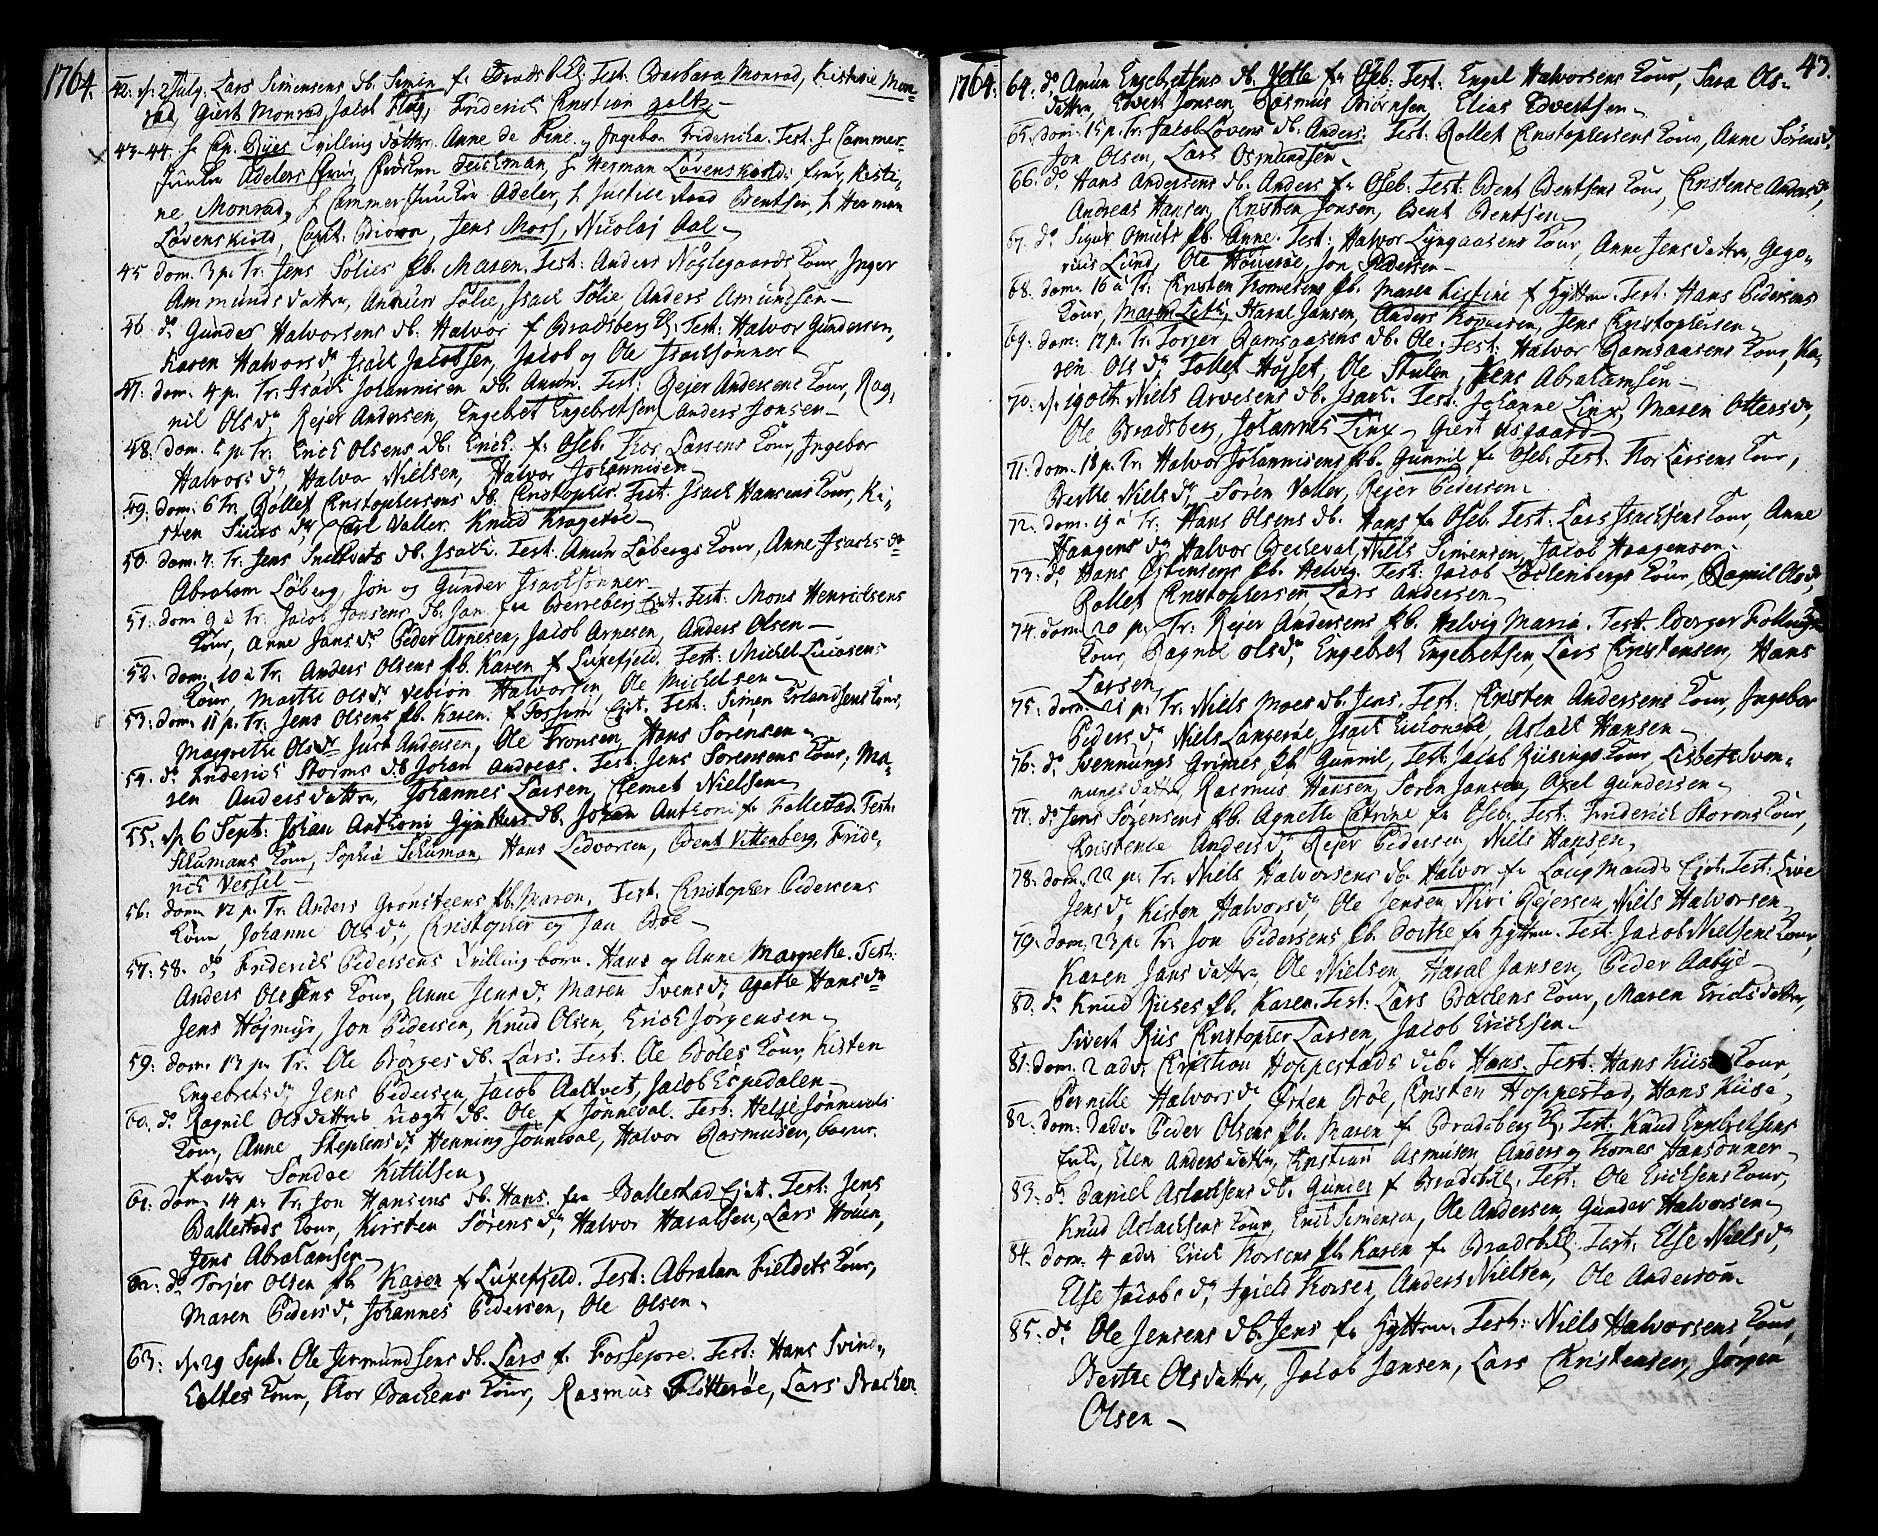 1764.
42. d. 2 July. Lars Simensens db. Simen fr Bradsb. Ejd. Test: Barbara Monrad, Kistine Mon-
rad, Giert Monrad, Jacob Flog, Friderich Cristian Goltz
43-44. H Cap. Riies Tvilling døttre Anne de Fine og Ingebor Friderica. Test. H Cammer-
Junker Adelers Frue, Frøcken Deichman, H Herman Løvenskiolds Frue, Kisti-
ne Monrad, H Cammer-Junker Adeler, H Justice Raad Bentsen, H Herman
Løvenskiold, Capt. Biörn, Jens Morf, Nicolaj Aal
45 dom. 3 p. Tr. Jens Solies pb. Maren. Test: Anders Nøglegaards Konr, Inger
Ammundsdattr, Amun Solie, Isach Solie Anders Amundsen
46. do Gunder Halvorsens db. Halvor f Bradsberg Ej. Test: Halvor Gundersen,
Karen Halvorsdr, Isach Jacobsen, Jacob og Ole Isachsønner
47. dom. 4 p. Tr. Isach Johannisen db. Amun. Test: Rejer Andersens Konr, Rag-
nil Olsdr, Rejer Andersen, Engebret Engebretsen, Anders Jonsen
48. dom. 5 p. Tr. Erich Olsens db. Erich. fr Oseb. Thor Larsens Konr, Ingebor
Halvorsdr, Halvor Nielsen, Halvor Johannisen
49. dom: 6 Tr. Rollef Cristophersens db. Cristopher. Test. Isach Hansens Konr, Ki-
sten Siursdr, Carl Valler. Knud Kragerøe
50. dom. 7. Tr. Jens Snitkers db. Isach. Test. Amun Løbergs Konr, Anne Isachsdr
Abraham Løberg, Jon og Gunder Isachsønner
51. dom. 9 a Tr. Jacob Jonsens db. Jan fra Berreberg Ejd. Test. Mons Henricksens
Konr, Anne Jansdr Peder Arnesen, Jacob Arnesen, Anders Olsen
52. dom. 10 a Tr. Anders Olsens pb. Karen f Luxefjeld. Test: Michel Lucasens
Konr, Marthe Olsdr, Torbiön Halvorsen, Ole Michelsen
53: dom. 11 p. Tr. Jens Olsens pb. Karen. f Fossum Ejd. Test: Simen Erlandsens Konr,
Margrethe Olsdr Just Andersen, Ole Tronsen, Hans Sørensen
54. do Friderich Storms db Johan Andreas. Test: Jens Sørensens Konr, Ma-
ren Andersdattr, Johannes Larsen, Clemet Nielsen
55. d. 6 Sept: Johan Anthoni Gyntters db. Johan Anthoni fr Follestad. Test:
Schumans Konr, Sophia Schuman, Hans Ledvorsen, Bent Vittenberg, Fride-
rich Vessel
56. dom. 12 p. Tr. Anders Gronsteens pb. Maren. Test. Cristopher Pedersens
Konr Johanne Olsdr, Christopher og Jan Böe
57:58. do Friderich Pedersens Tvilling börn. Hans og Anne Margrethe. Test:
Anders Olsens Konr, Anne Jensdr, Maren Svensdr, Agathe Hansdr
Jens Højmyr, Jon Pedersen, Knud Olsen, Erich Jørgensen
59: dom. 13 p. Tr. Ole Børges db. Lars. Test. Ole Böles Konr, Kisten
Engebretsdr, Jens Pedersen, Jacob Aaltvet, Jacob Espedalen
60. do Ragnil Olsdatters uægte db. Ole f Jönneval. Test: Helje Jönnevals
Konr, Anne Stephensdr, Henning Jönneval, Halvor Rasmusen, barne
fader Sondoe Kittilsen
61. dom. 14 p. Tr. Jon Hansens db. Hans fra Ballestad Ejd. Test: Jens
Ballestads Konr, Kirsten Sörensdr, Halvor Haralsen, Lars Houen,
Jens Abrahamsen
62. do Torjer Olsen pb. Karen f Luxefjeld. Test: Abraham Fieldets Konr,
Maren Pedersdr, Johannes Pedersen, Ole Olsen
63: d. 29 Sept. Ole Jermundsens db. Lars f. Fossepore. Test: Hans Svind-
Thor Bachens Konr, Rasmus Flötteröe, Lars Bachen
1764.
43.
64. do Amun Engebretsens db. Jelle fr Oseb. Test: Engel Halvorsens Konr, Sara Ols-
dattr, Edvert Jonsen, Rasmus Biörnsen, Elias Edvertsen
65. dom. 15 p. Tr. Jacob Lövens db. Anders. Test: Rollef Cristophersens Konr, Anne Sörensd.
Jon Olsen, Lars Osmundsen
66. do Hans Andersens db. Anders fr Oseb. Test: Bent Bentsens Konr, Cristence Andersdr
Andreas Hansen, Cristen Jonsen, Bent Bentsen
67. do Sigur Omuts pb. Anne. Test: Halvor Lyngaasens Konr, Anne Jensdattr, Grego-
rius Lund, Ole Høyerøe, Jon Pedersen
68. dom. 16 a Tr. Cristen Tomesens pb. Maren Kistine f Hytten. Test: Hans Pedersens
Konr, Maren Lethz, Haral Jansen, Anders Jens Christophersen
69. dom: 17 p. Tr. Torjer Ramsaasens db. Ole. Test: Halvor Ramsaasens Konr, Ka-
ren Olsdr Tollef Højset, Ole Stulen, Jens Abrahamsen
70. d. 19 Octr. Niels Arvesens db. Isach. Test: Johanne Linx, Maren Ottersdr,
Ole Bradsberg, Johannes Linx, Giert Asgaard
71: dom. 18 p. Tr. Halvor Johannisens pb. Gunnil fr Oseb. Test: Thor Larsens Konr,
Berthe Nielsdr, Sören Valler, Rejer Pedersen
72. dom. 19 a Tr. Hans Olsens db. Hans fr Oseb. Test: Lars Isachsens Konr, Anne
Haagensdr Halvor Becheval, Niels Simensen, Jacob Haagensen
73: do Hans Östensens pb. Helvig. Test: Jacob Konr, Ragnil Olsdr,
Rollef Cristophersen Lars Andersen
74. dom. 20 p. Tr. Rejer Andersens pb. Helvig Maria. Test: Børger
Konr, Ragnil Olsdr, Engebret Engebretsen, Lars Christensen, Hans
Larsen
75. dom. 21 p. Tr. Niels Moes db. Jens. Test. Cristen Andersens Konr, Ingebor
Pedersdr, Niels Langerøe, Isach Aslach Hansen
76. do Svennungs Grimes pb. Gunnil, Test: Jacob Riisings Konr, Lisbeth Sven-
nungsdattr, Rasmus Hansen, Sören Jansen, Axel Gundersen
77. do Jens Sørgensens pb. Agnethe Catrine fr Oseb. Test: Friderich Storms Konr,
Cristence Andersdr, Rejer Pedersen, Niels Hansen
78. dom. 22 p. Tr. Niels Halvorsens db. Halvor fr Laugmands Ejd. Test: Live
Jensdr, Kisten Halvorsdr, Ole Jensen Niri Rejersen, Niels Halvorsen
79. dom. 23 p. Tr. Jon Pedersens pb. Dorthe fr Hytten. Test: Jacob Nielsens Konr,
Karen Jansdattr, Ole Nielsen, Haral Jansen, Peder Aabye
80. do Knud Riises pb. Karen. Test: Lars Bachens Konr, Maren Erichsdattr,
Sivert Riis Cristopher Larsen, Jacob Erichsen
81. dom. 2 adv. Cristian Hoppestads db. Hans. Test: Hans Kiises Konr,
Pernille Halvorsdr, Östen Böe, Cristen Hoppestad, Hans Kiise
82. dom. 3 adv. Peder Olsens pb. Maren f Bradsberg Ej. Test: Knud Engbretsens
Enke, Elen Andersdattr, Cristian Asmusen Anders og Tomes Hansønner
83. do Daniel Aslachsens db. Gunder f Bradsb. Ej. Test: Ole Erichsens Konr,
Knud Aslachsens Konr, Erich Simensen, Ole Andersen, Gunder Halvorsen
84. dom. 4 adv. Erich Thorsens pb. Karen fr Bradsb. Ej. Test. Else Nielsdr,
Else Jacobsdr, Thorsen, Anders Nielsen, Ole Anderson
85. do Ole Jensens db. Jens fr Hytten. Test: Niels Halvorsens Konr,
Berthe Olsdattr, Jacob Jansen, Lars Christensen, Jörgen
Olsen